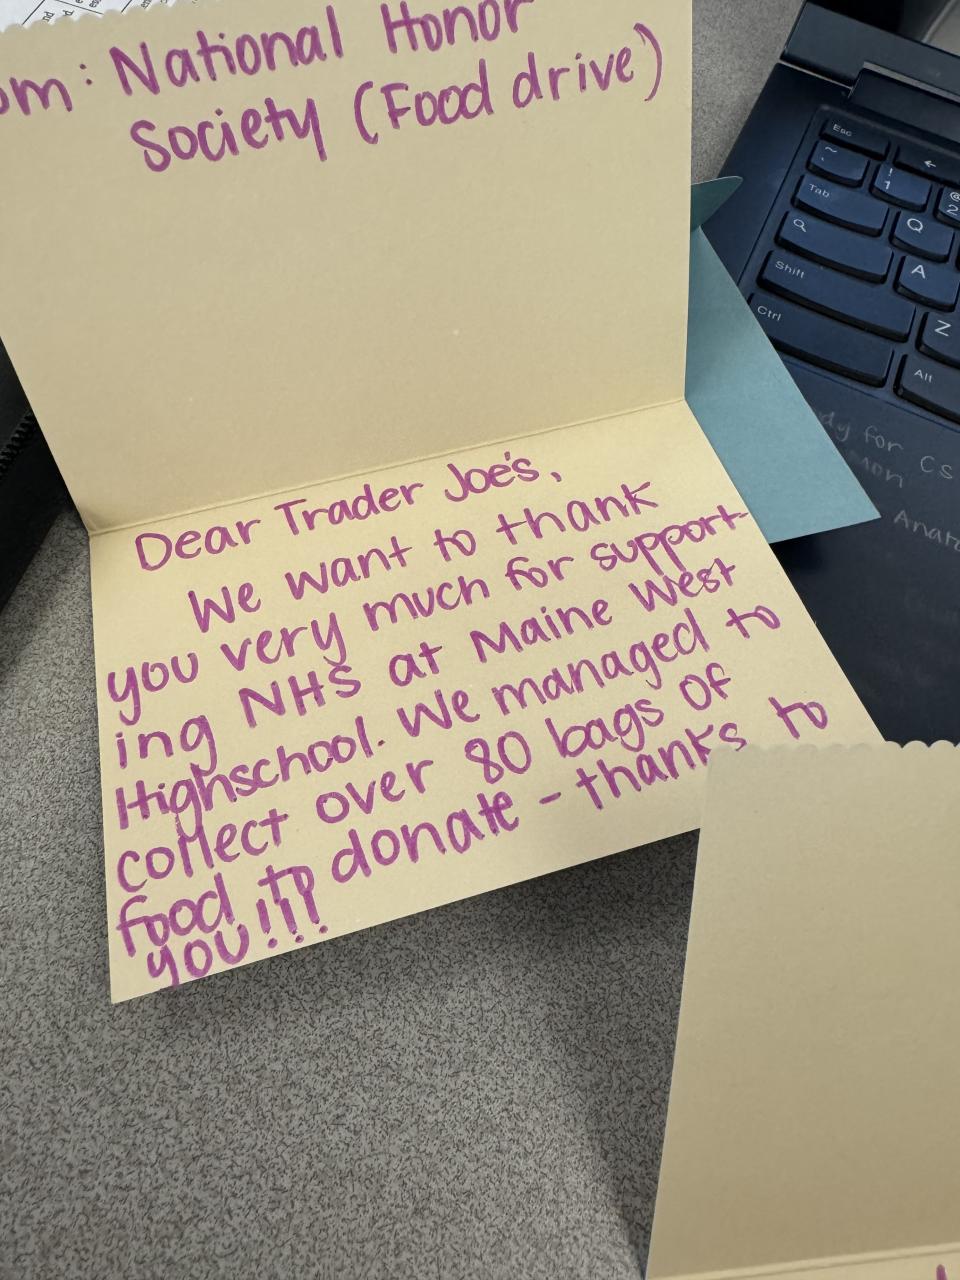 om: National Honor
Society (Food drive)
Dear Trader Joe's,
We want to thank
you very much for support-
ing NHS at Maine West
Highschool. We managed to
collect over 80 bags of
food to donate - thanks to
you!!!
Esc
~ ! 1 @ 2
Tab Q
A
Shift Z
Ctrl Alt
dy for CS